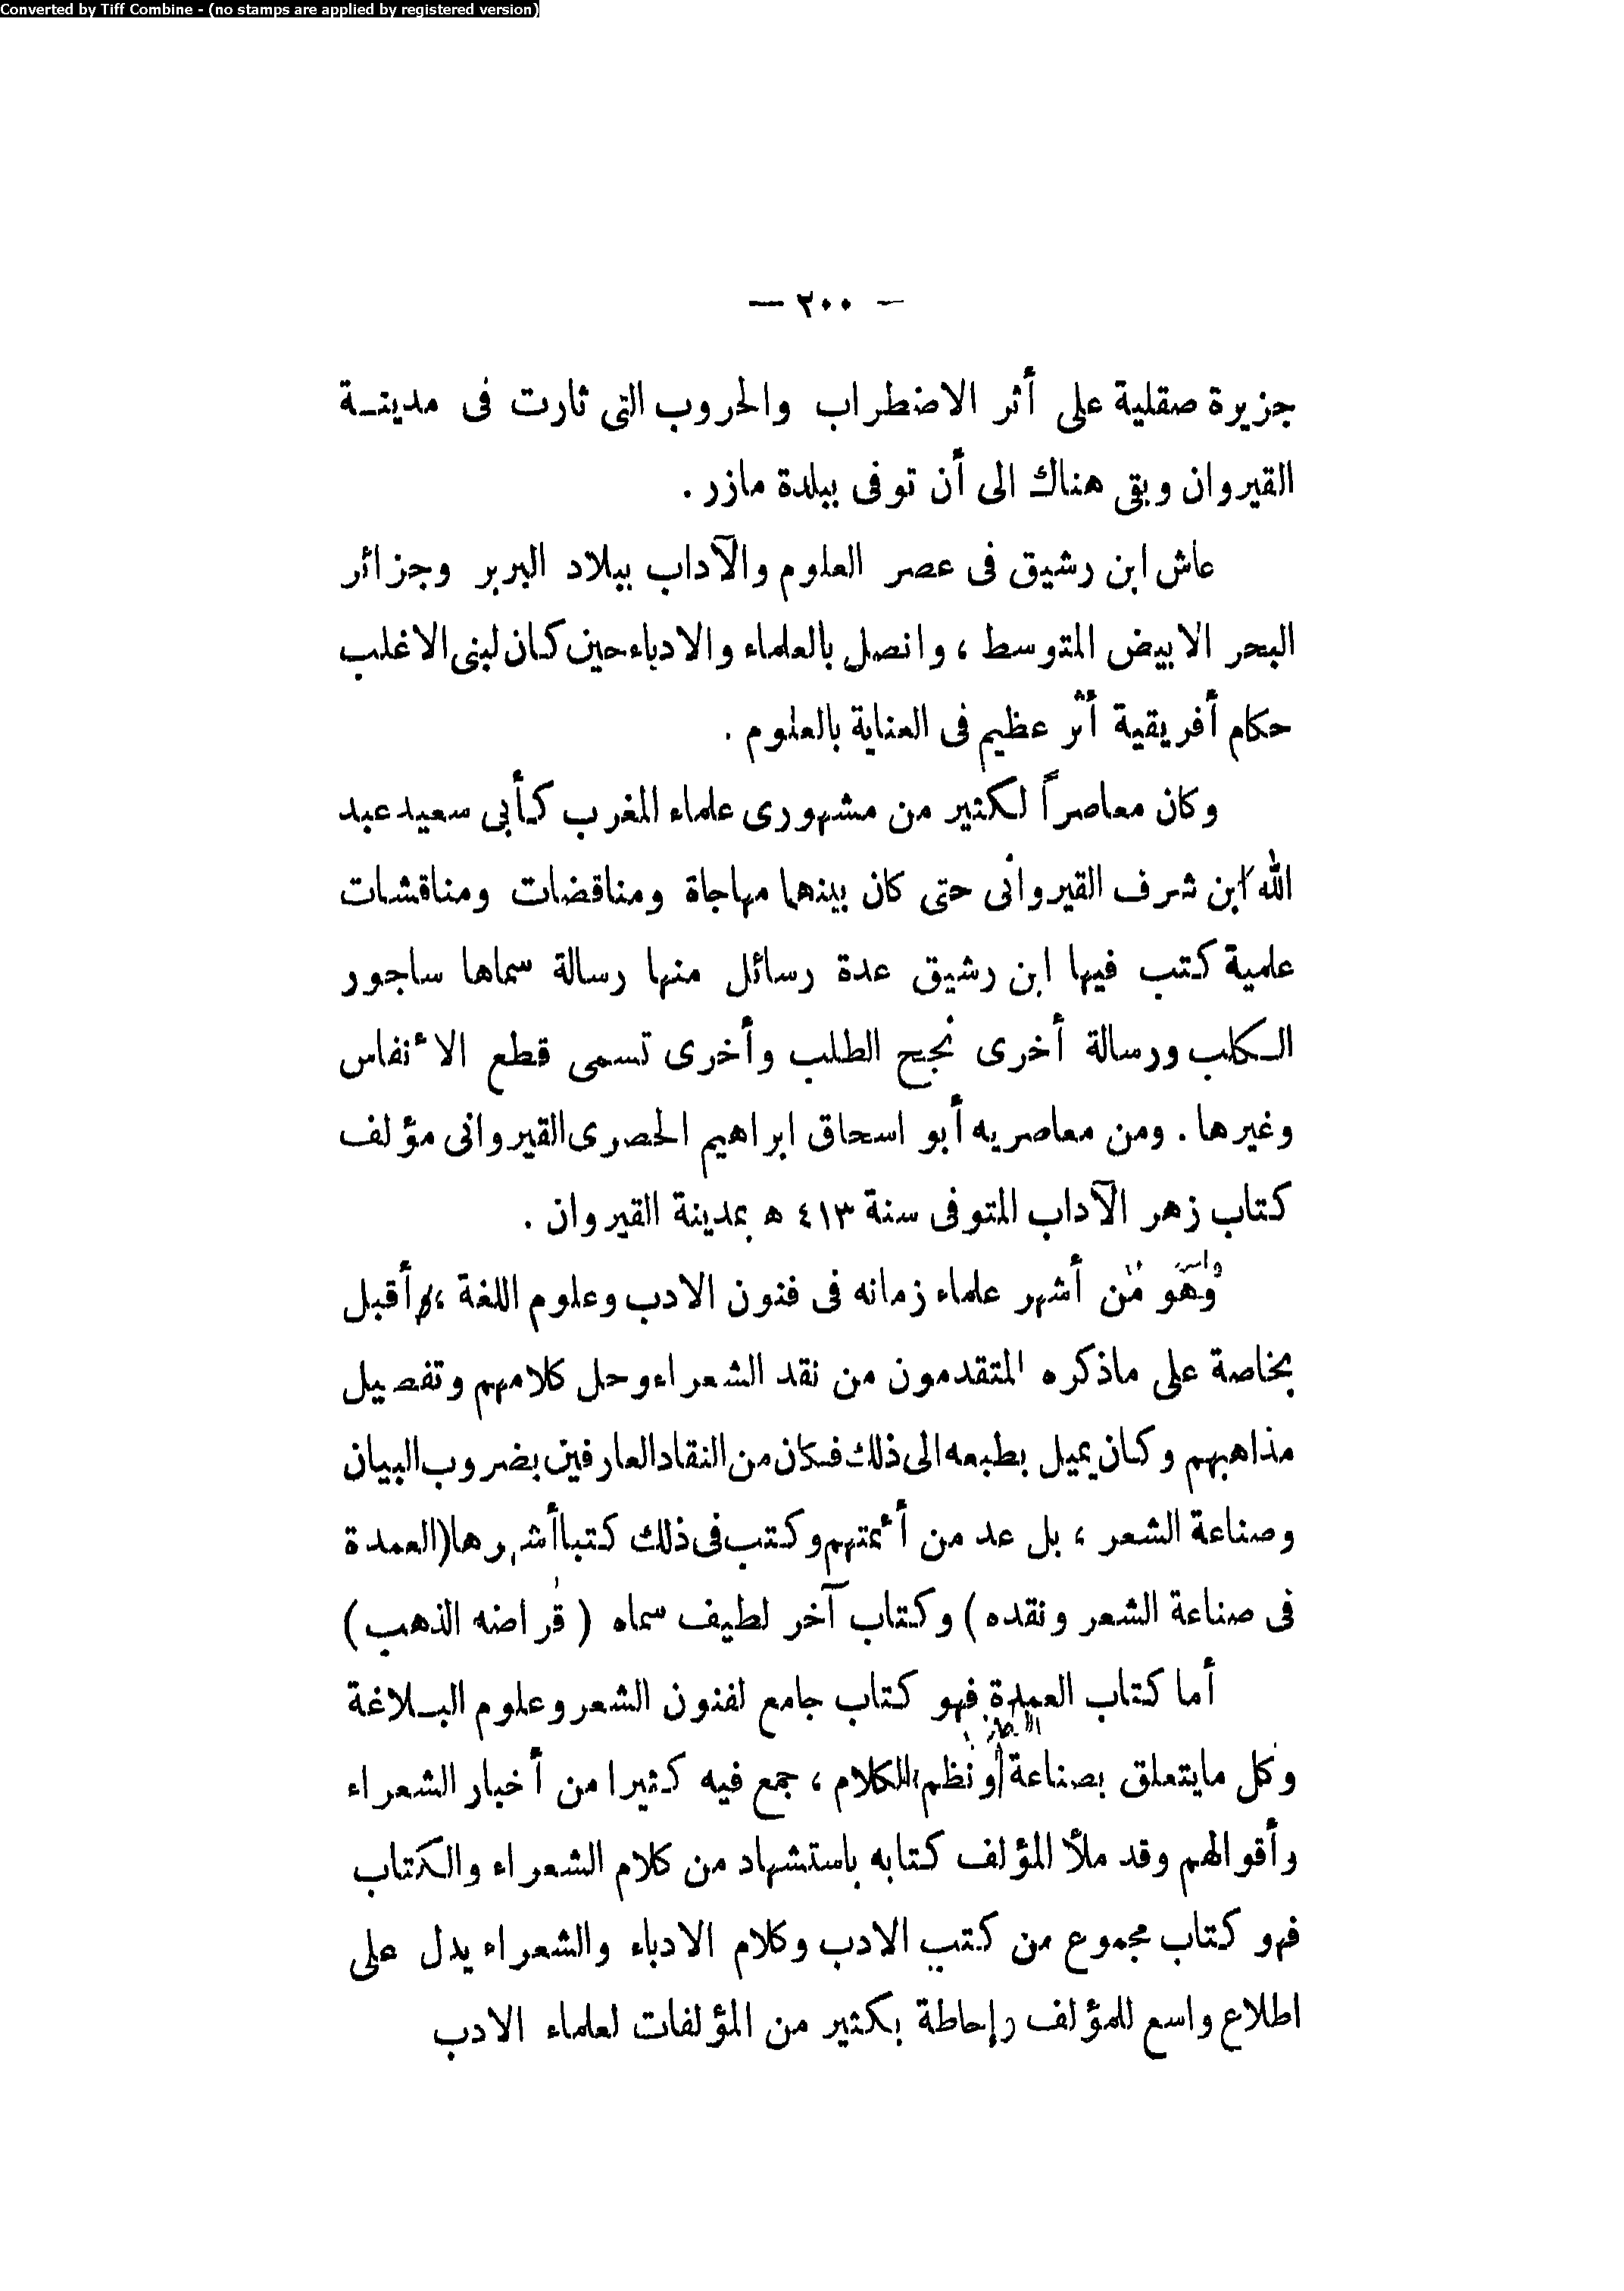 Converted by Tiff Combine - (no stamps are applied by registered version)
— ٢٠٠ —
جزيرة صقلية على أثر الاضطراب والحروب التى ثارت فى مدينـة
القيروان وبقى هناك الى أن توفى ببلدة مازر .
عاش ابن رشيق فى عصر العلوم والآداب ببلاد البربر وجزائر
البحر الابيض المتوسط ، واتصل بالعلماء والادباء حين كان لبنى الاغلب
حكام أفريقية أثر عظيم فى العناية بالعلوم .
وكان معاصراً لكثير من مشهورى علماء المغرب كأبى سعيد عبد
الله ابن شرف القيروانى حتى كان بينهما مهاجاة ومناقضات ومناقشات
علمية كتب فيها ابن رشيق عدة رسائل منها رسالة سماها ساجور
الـكلب ورسالة أخرى نجح الطلب وأخرى تسمى قطع الأنفاس
وغيرها . ومن معاصريه أبو اسحاق ابراهيم الحصرى القيروانى مؤلف
كتاب زهر الآداب المتوفى سنة ٤١٣ ه بمدينة القيروان .
وهو من أشهر علماء زمانه فى فنون الادب وعلوم اللغة ، وأقبل
بخاصة على ماذكره المتقدمون من نقد الشعراء وحل كلامهم وتفصيل
مذاهبهم وكان يميل بطبعه الى ذلك فكان من النقاد العارفين بضروب البيان
وصناعة الشعر ، بل عد من أئمتهم وكتب فى ذلك كتبا أشهرها (العمدة
فى صناعة الشعر ونقده) وكتاب آخر لطيف سماه ( قراضه الذهب )
أما كتاب العمدة فهو كتاب جامع لفنون الشعر وعلوم البـلاغة
وكل مايتعلق بصناعة أو نظم الكلام ، جمع فيه كثيرا من أخبار الشعراء
وأقوالهم وقد ملأ المؤلف كتابه باستشهاد من كلام الشعراء والكتاب
فهو كتاب مجموع من كتب الادب وكلام الادباء والشعراء يدل على
اطلاع واسع للمؤلف وإحاطة بكثير من المؤلفات لعلماء الادب